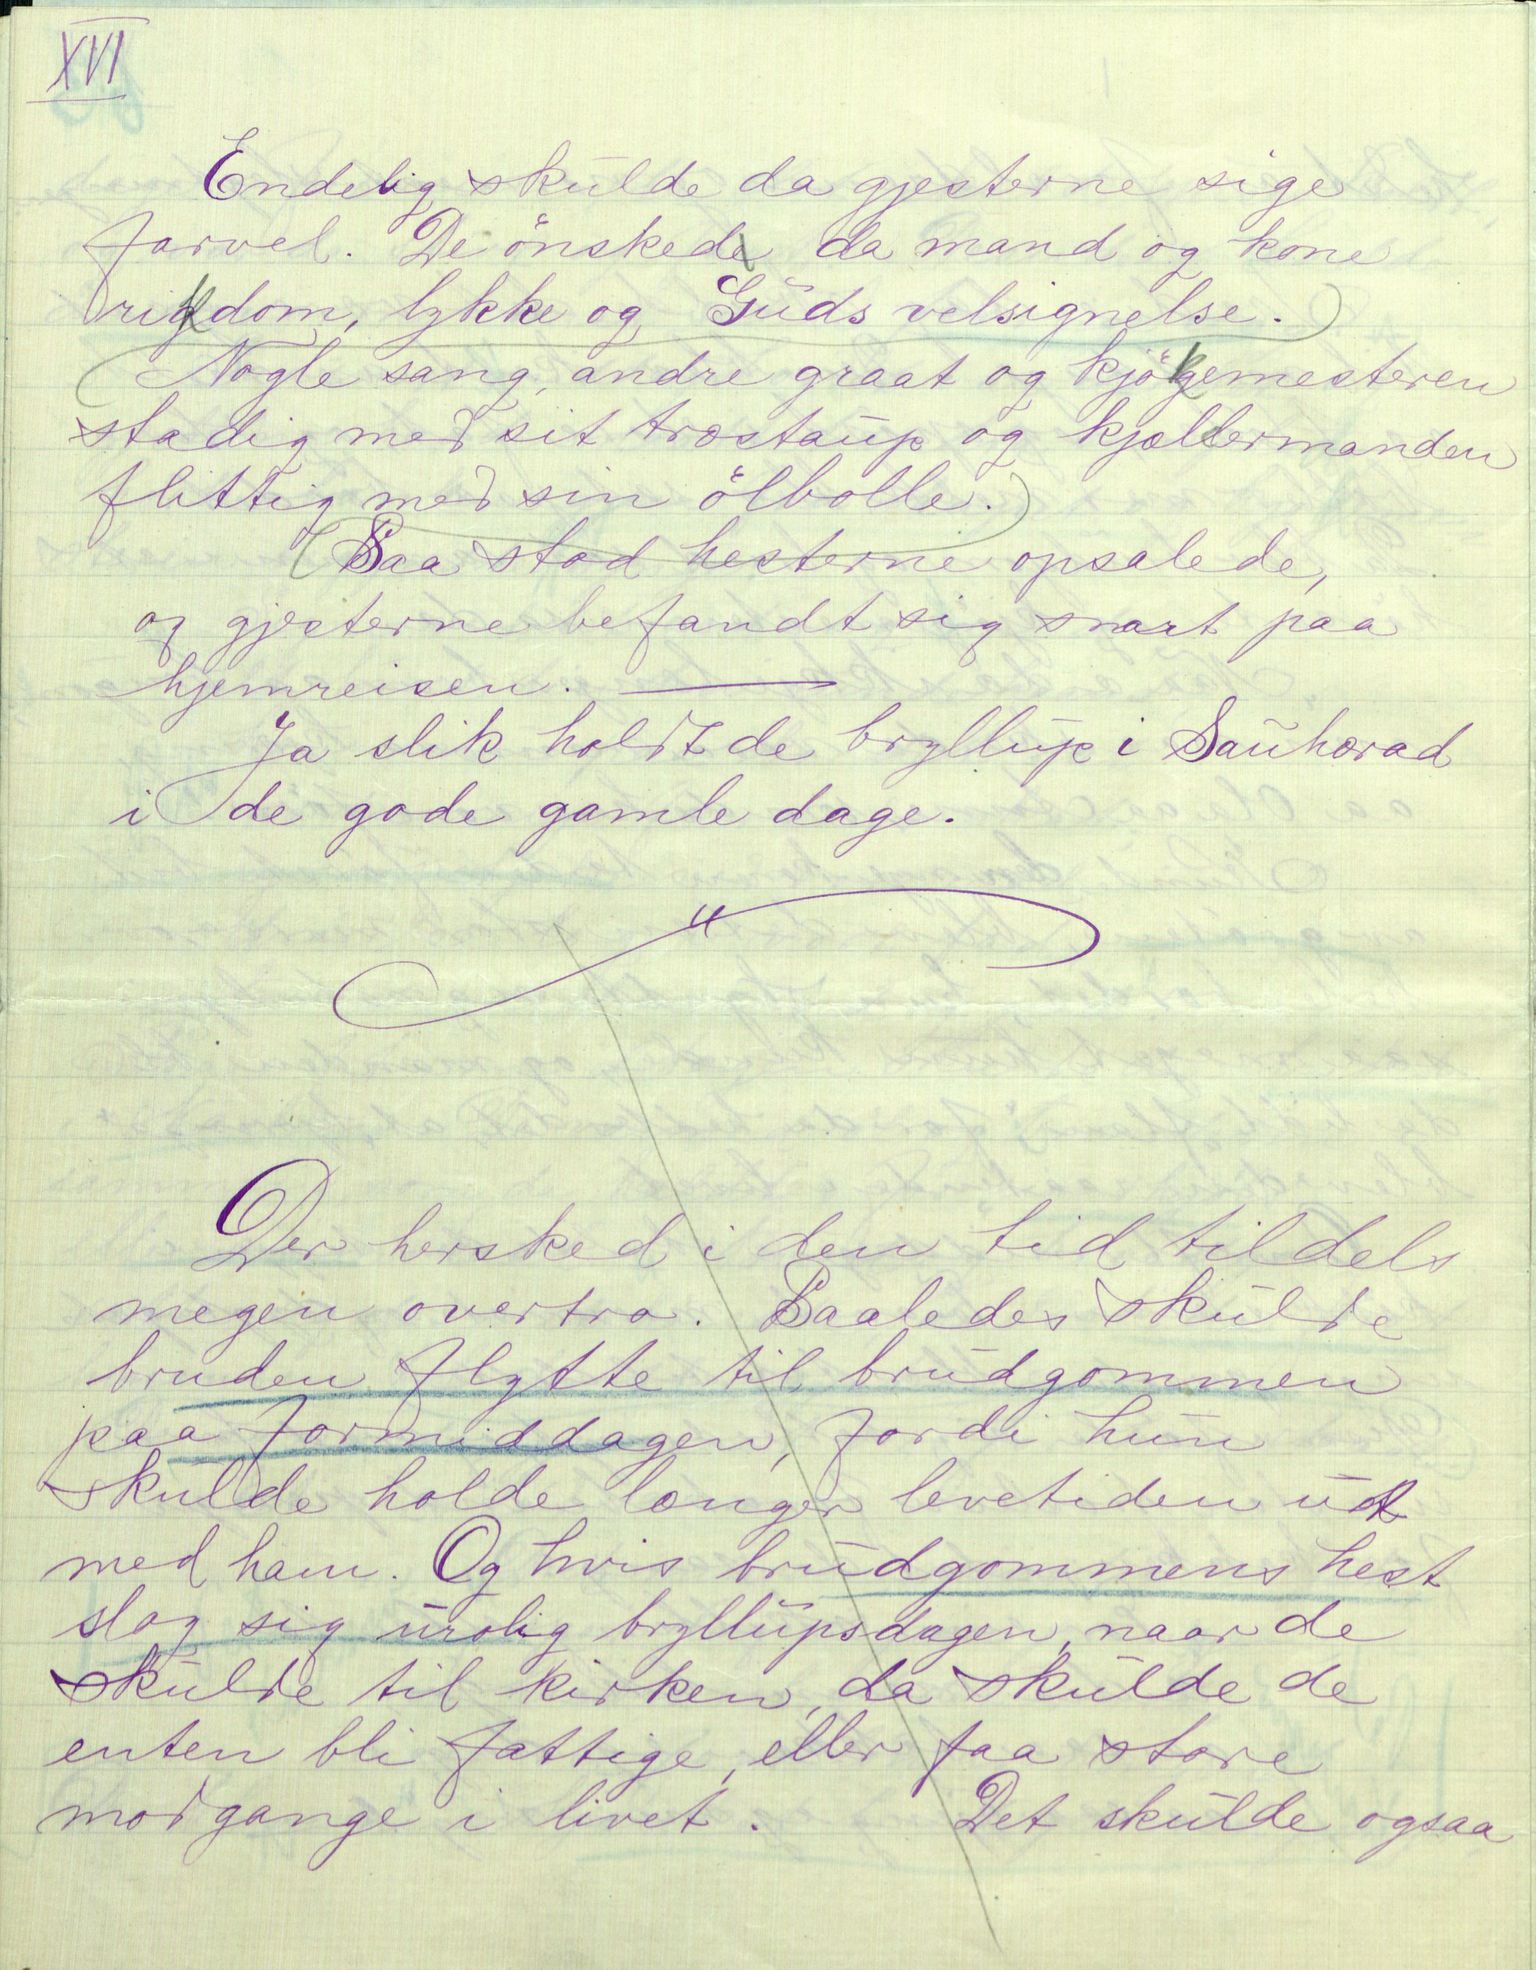 XVI
Endelig skulde da gjesterne sige
farvel. De önsked da mand og kone
rikdom, lykke og Guds velsignelse.
Nogle sang, andre graat og kjökemesteren
stadig med sit træstaup og kjællermanden
flittig med sin ölbolle.
Saa stod hesterne opsalede,
og gjesterne befandt sig snart paa
hjemreisen. —
Ja slik holdt de bryllup i Sauherad
i de gode gamle dage.
Der hersked i den tid tildels
megen overtro. Saaledes skulde
bruden flytte til brudgommen
paa formiddagen, fordi hun
skulde holde længer levetiden ut
med ham. Og hvis brudgommens hest
slog sig urolig bryllupsdagen, naar de
skulde til kirken, da skulde de
enten bli fattige, eller faa store
modgange i livet. Det skulde ogsaa